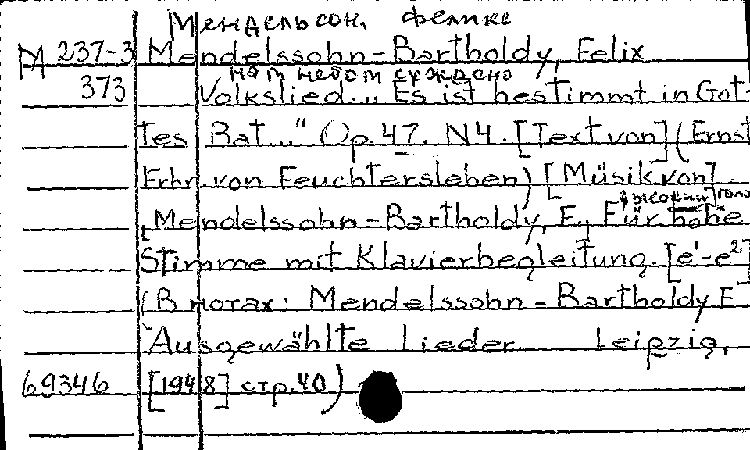 Мендельсон, Феликс
М 237-3 Mendelssohn-Bartholdy, Felix
нам небом суждено
373 Volkslied „Es ist bestimmt in Got-
tes Rat..." Op. 47. N4. [Text von] (Ernst
Frhr. von Feuchtersleben) [Musik von]
Mendelssohn-Bartholdy, F. Für hohe
Stimme mit Klavierbegleitung. [e'-e²]
(В нотах: Mendelssohn-Bartholdy F.
Ausgewählte Lieder Leipzig,
69346 [1948] стр. 40)